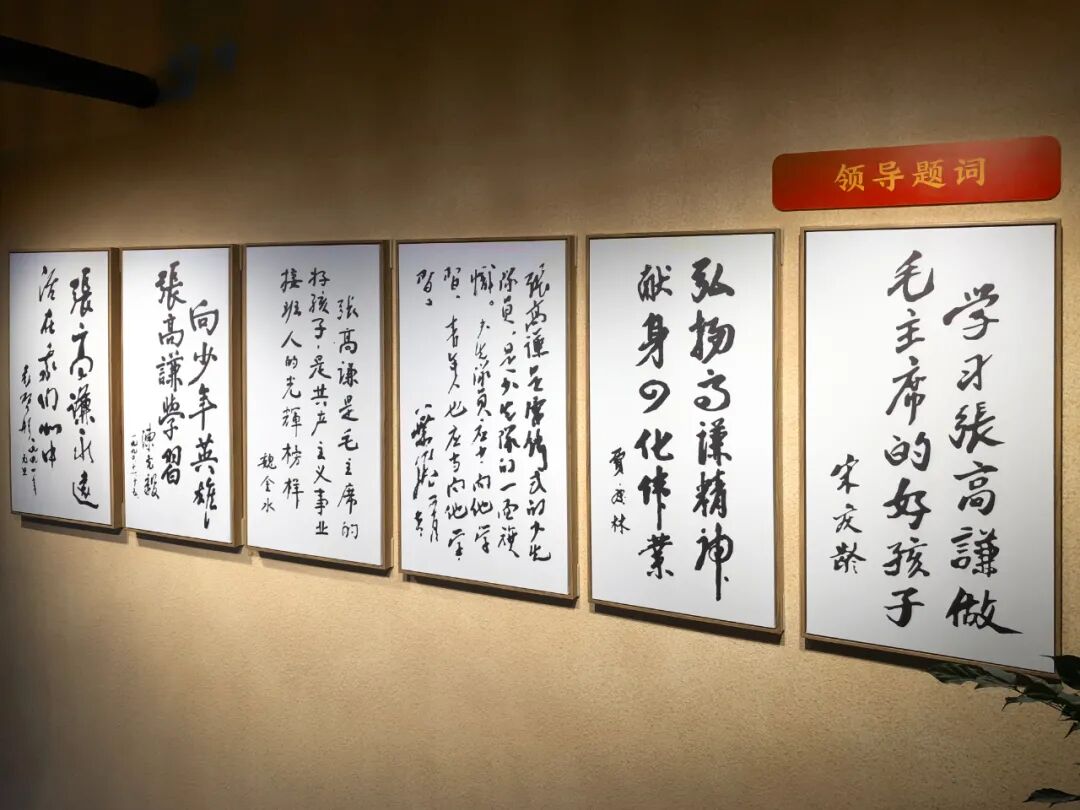 领导题词
学习張高謙做
毛主席的好孩子
宋庆龄
弘扬高谦精神
献身四化伟业
贾庆林
張高谦是雷锋式的少先
队员,是少先队的一面旗
幟。少先队员应当向他学
習,青年人也应当向他学
習。
葉飛
张高谦是毛主席的
好孩子,是共产主义事业
接班人的光輝榜样
魏金水
向少年英雄
張高謙學習
陳光毅
張高謙永遠
活在我们心中